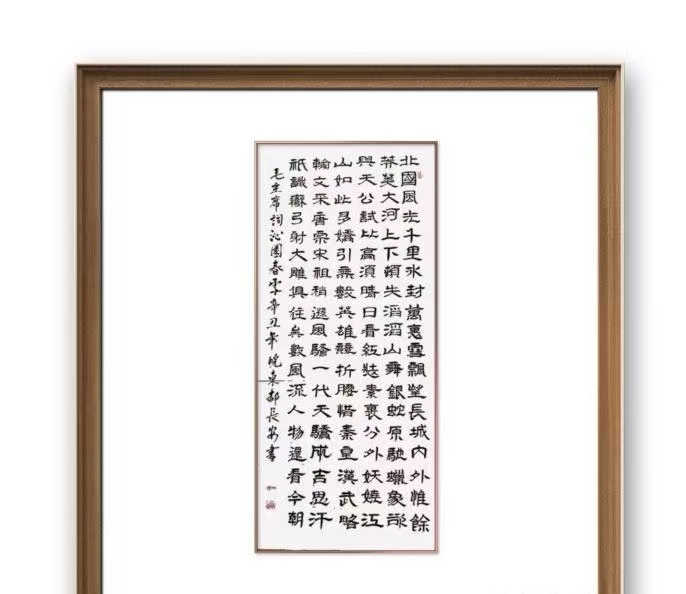 北國風光千里冰封萬裏雪飄望長城内外惟餘
莽莽大河上下頓失滔滔山舞銀蛇原馳蠟象欲
與天公試比高須晴日看紅裝素裹分外妖嬈江
山如此多嬌引無數英雄競折腰惜秦皇漢武略
輸文采唐宗宋祖稍遜風騷一代天驕成吉思汗
祇識彎弓射大雕俱往矣數風流人物還看今朝
毛主席詞沁園春雪辛丑年曉泉郝長安書